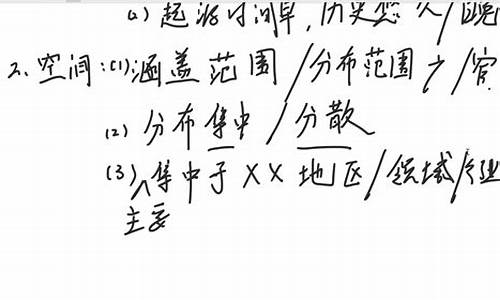 (2) 起源时间早，历史悠久/
2、空间：(1)涵盖范围/分布范围广/
(2) 分布集中/分散
(3) 集中于XX地区/领域/
主要